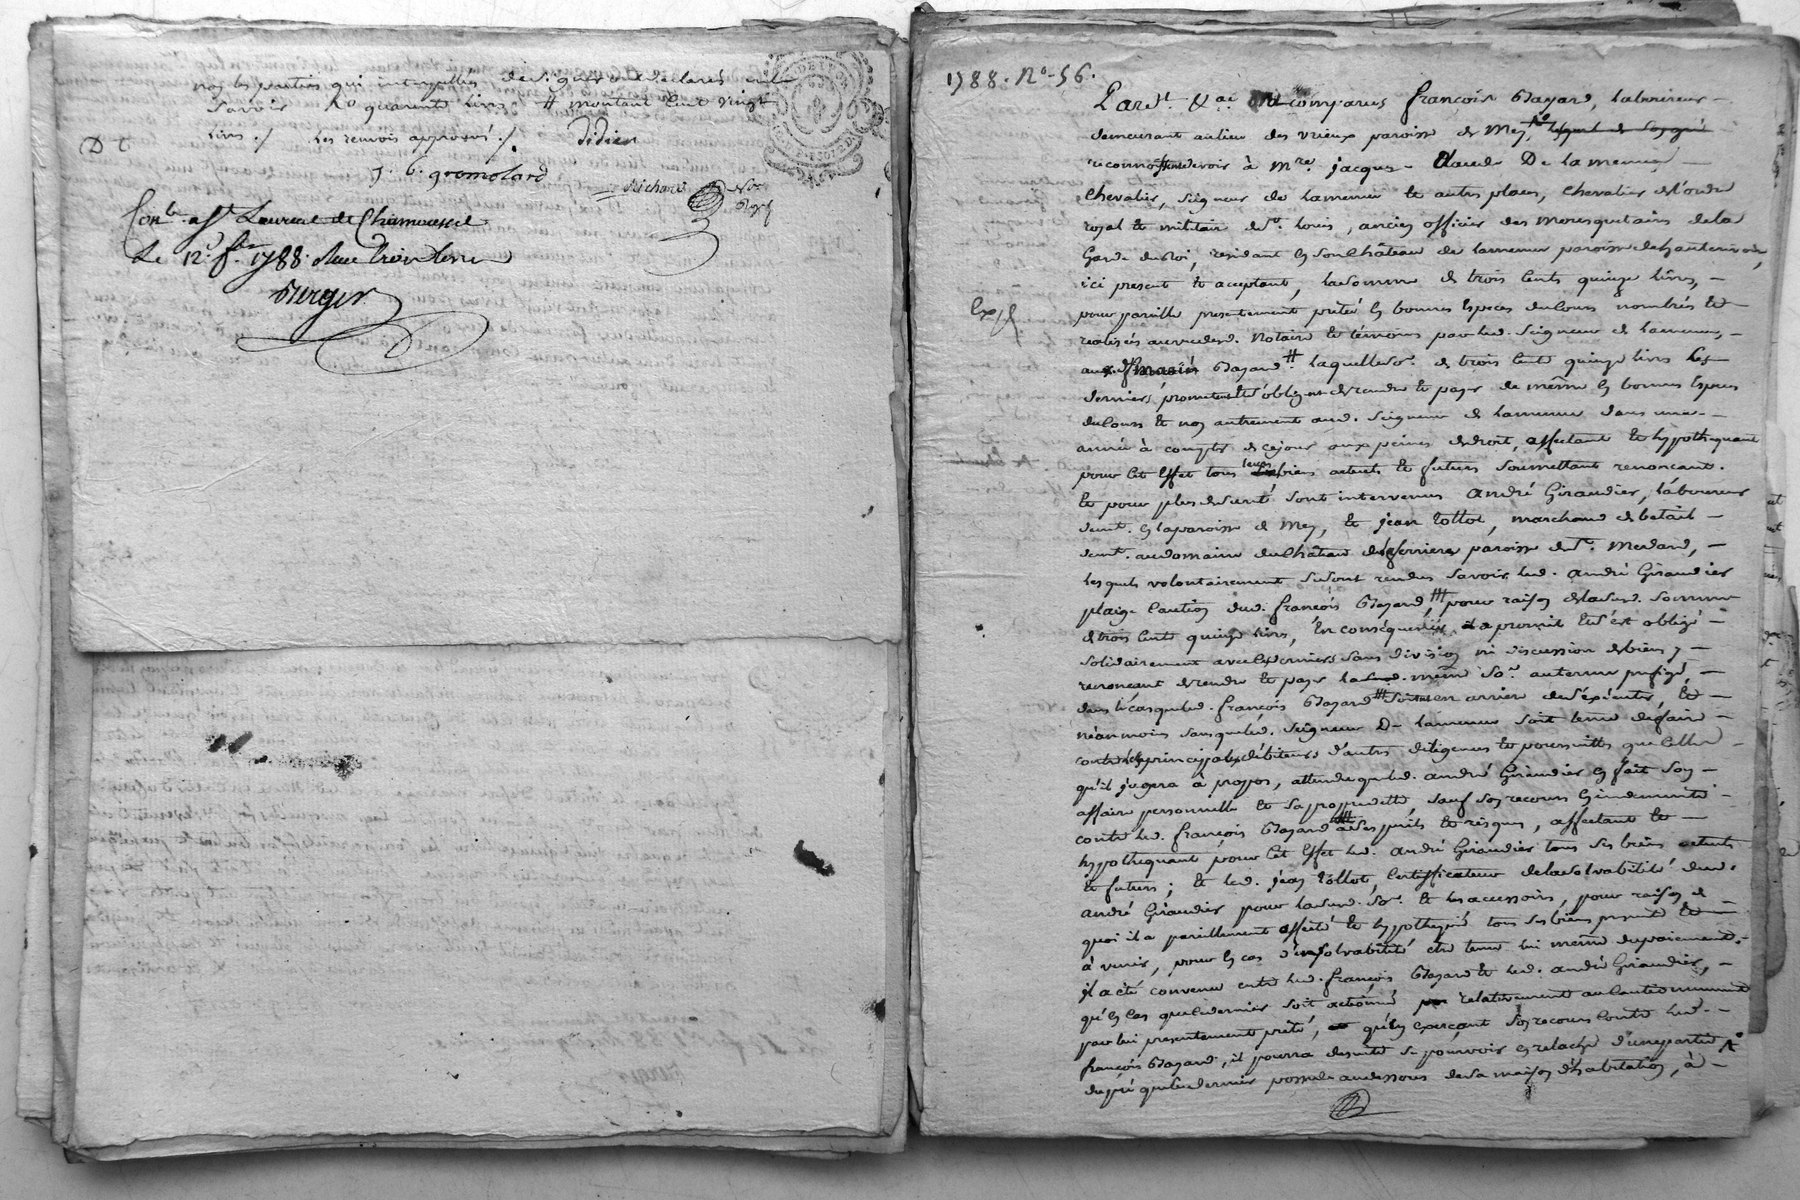 non les parties qui interpellés de signer ont déclaré
savoir No quarante livres # montant à cent vingt
livres ./ Les renvois approuvés ./. Didier
D C
J. C. gromolard
Richard Nore Royl
Conlé. à St Laurent de Chamousset
Le 12. f.er 1788. Reçu trois livres
Berger
1788. No. 56.
Pardt. &a. ont comparus françois Bazard, laboureur
demeurant au lieu des vrieux paroisse de Meys
reconnoissent devoir à Mre. jacques Claude De la menue
Chevalier, Seigneur de lamenue et autres places, Chevalier de l'ordre
royal et militaire de St. Louis, ancien officier des Mousquetaires de la
Garde du Roi, résidant en son Château de lamenue paroisse de hauterivoire,
ici present et acceptant, la somme de trois cents quinze livres,
Expé
pour pareille presentement prêtée en bonnes Especes du Cours nombrés et
realisés au vu dud. Notaire et témoins par led. Seigneur de lamenue,
aud. Bazard # laquelle so.e de trois Cents quinze livres les
derniers promettent et s'obligent de rendre et payer de même en bonnes Especes
du Cours et non autrement aud. Seigneur de lamenue dans une
année à compter de ce jour aux peines de droit, affectant et hypothequant
pour cet Effet tous leurs biens actuels et futurs soumettant renonçant.
Et pour plus de sureté sont intervenus andré Giraudier, laboureur
demt. en la paroisse de Meys, et jean tollot, marchand de betail
demt. au domaine du Château de ferrieres paroisse de St. Medard,
lesquels volontairement se sont rendus savoir led. andré Giraudier
pleige caution dud. françois Bazard, # pour raison de lad. somme
de trois cents quinze livres, En conséquence il a promit et s'est obligé
solidairement avec les derniers sans division ni discussion de biens y
renonçant de rendre et payer lad. même so.e au terme prefigé,
dans le cas que led. françois Bazard # soient en arriere de s'exécuter, et
néanmoins sans que led. Seigneur De lamenue soit tenu de faire
contre les principaux débiteurs d'autres diligences et poursuittes que celles
qu'il jugera à propos, attendu que led. andré Giraudier en fait son
affaire personnelle et sa propre dette, sauf son recours en indemnité
contre led. françois Bazard à ses perils et risques, affectant et
hypothequant pour cet effet led. andré Giraudier tous ses biens actuels
et futurs; et led. jean tollot, Certifficateur de la solvabilité dud.
andré Giraudier pour lad. so.e et les accessoirs, pour raison de
quoi il a pareillement affecté et hypothequé tous ses biens présents et
à venir, pour en cas d'insolvabilité être tenu lui même du paiement.
il a été convenu entre led. françois Bazard et led. andré Giraudier,
qu'en cas que ce dernier soit actionné relativement au cautionnement
par lui presentement prêté, qu'en exerçant son recours contre led.
françois Bazard, il pourra de suite se pourvoir en relache d'une partie
du pré que ce dernier possede au dessous de sa maison d'habitation, à